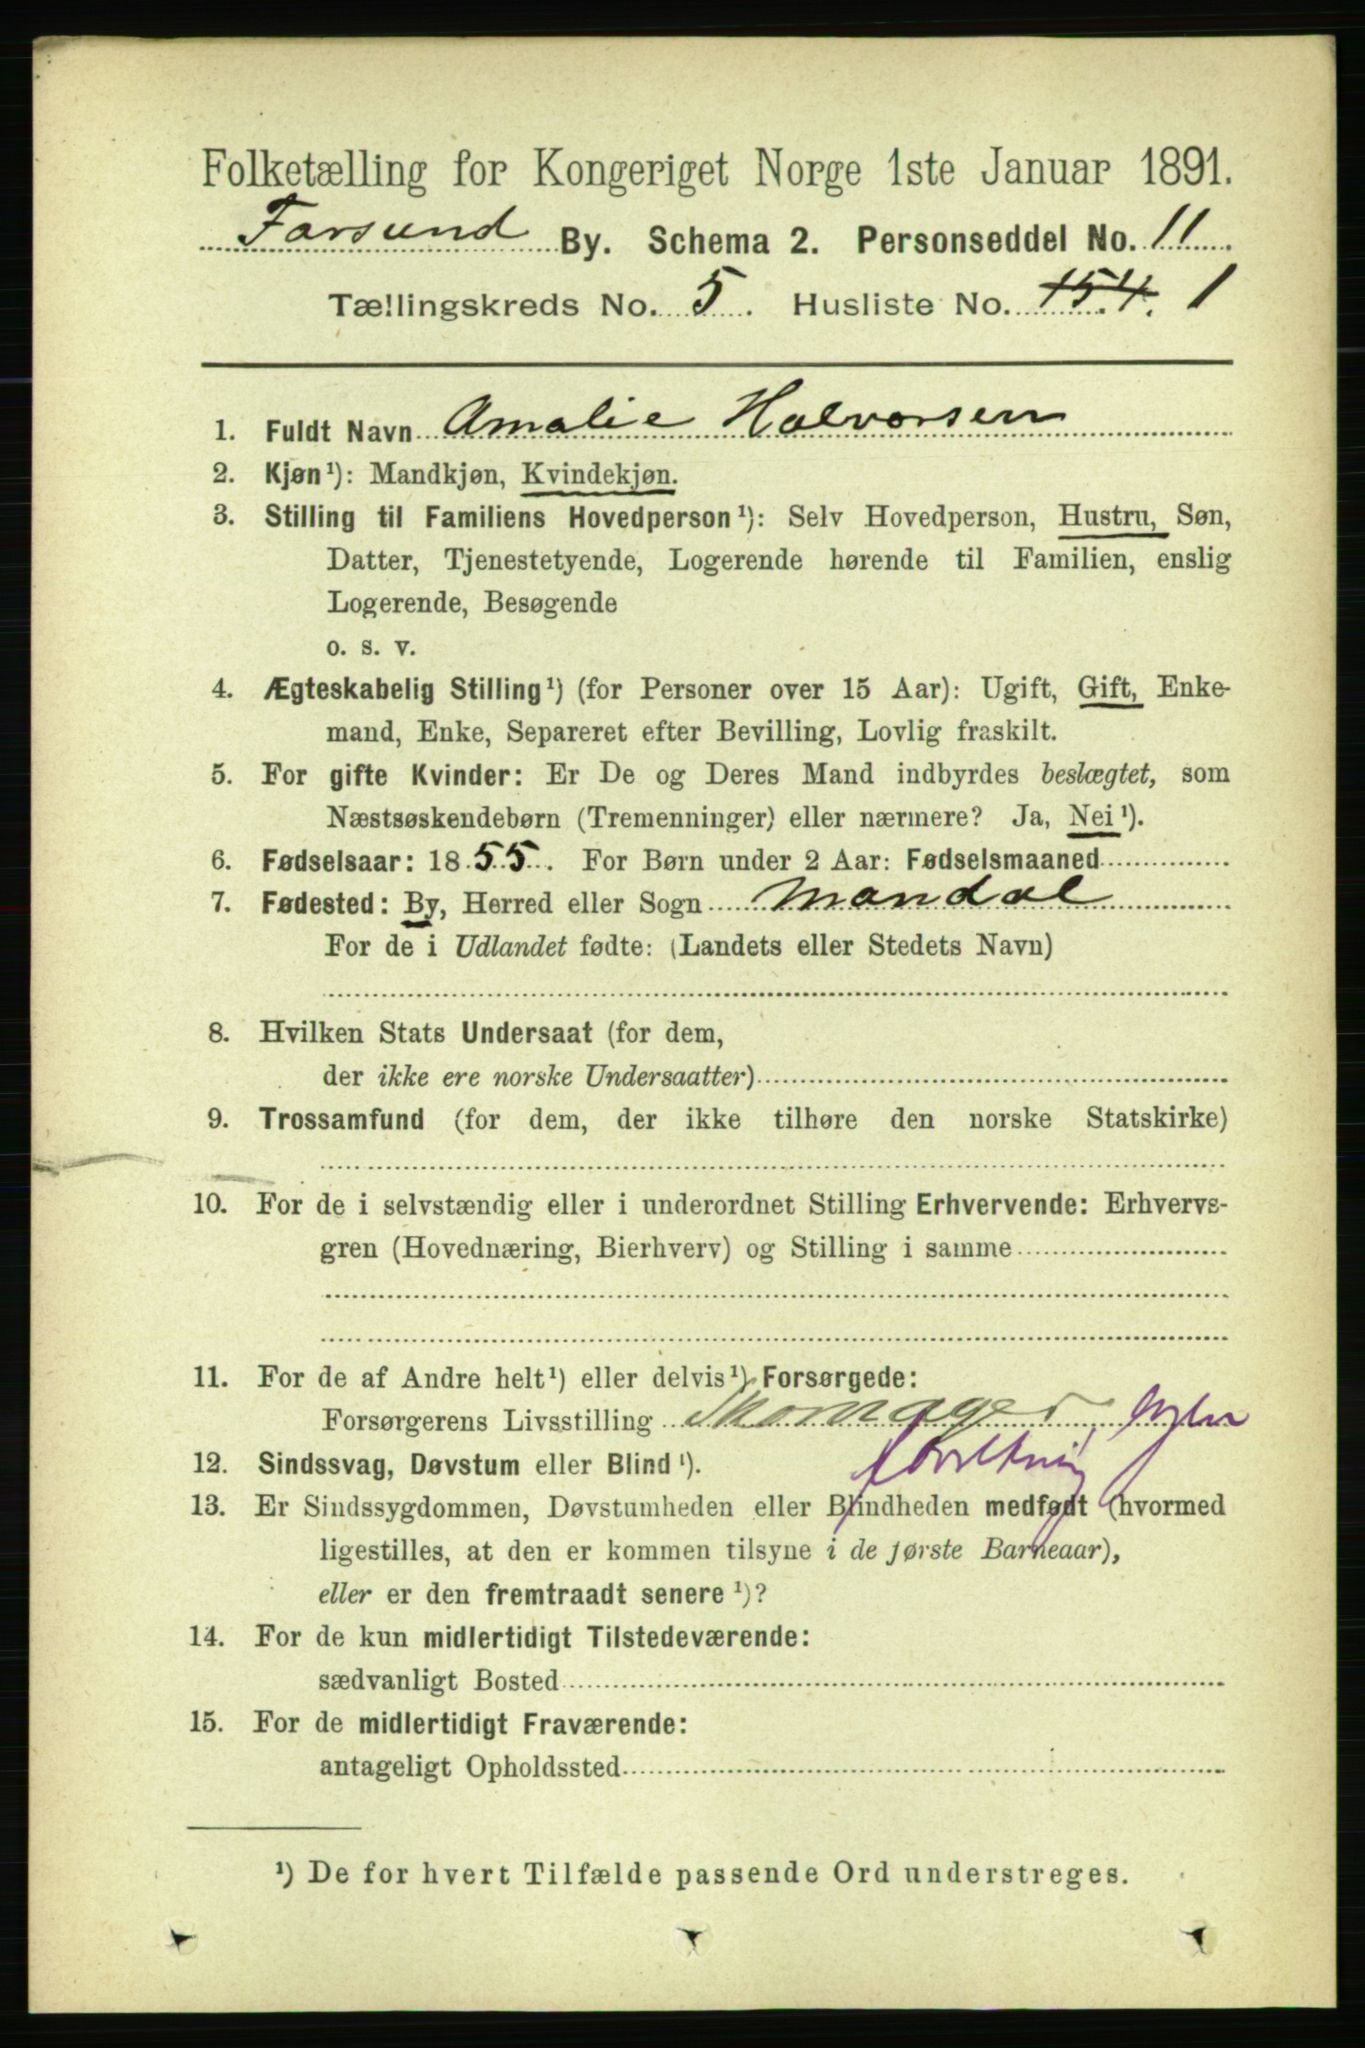 Folketælling for Kongeriget Norge 1ste Januar 1891.
Farsund By. Schema 2. Personseddel No. 11
Tællingskreds No. 5. Husliste No. 154. 1
1. Fuldt Navn Amalie Halvorsen
2. Kjøn¹): Mandkjøn, Kvindekjøn.
3. Stilling til Familiens Hovedperson¹): Selv Hovedperson, Hustru, Søn,
Datter, Tjenestetyende, Logerende hørende til Familien, enslig
Logerende, Besøgende
o. s. v.
4. Ægteskabelig Stilling¹) (for Personer over 15 Aar): Ugift, Gift, Enke-
mand, Enke, Separeret efter Bevilling, Lovlig fraskilt.
5. For gifte Kvinder: Er De og Deres Mand indbyrdes beslægtet, som
Næstsøskendebørn (Tremenninger) eller nærmere? Ja, Nei¹).
6. Fødselsaar: 1855. For Børn under 2 Aar: Fødselsmaaned
7. Fødested: By, Herred eller Sogn Mandal
For de i Udlandet fødte: (Landets eller Stedets Navn)
8. Hvilken Stats Undersaat (for dem,
der ikke ere norske Undersaatter)
9. Trossamfund (for dem, der ikke tilhøre den norske Statskirke)
10. For de i selvstændig eller i underordnet Stilling Erhvervende: Erhvervs-
gren (Hovednæring, Bierhverv) og Stilling i samme
11. For de af Andre helt¹) eller delvis¹) Forsørgede:
Forsørgerens Livsstilling Skomager,
forretning
12. Sindssvag, Døvstum eller Blind¹).
13. Er Sindssygdommen, Døvstumheden eller Blindheden medfødt (hvormed
ligestilles, at den er kommen tilsyne i de første Barneaar),
eller er den fremtraadt senere¹)?
14. For de kun midlertidigt Tilstedeværende:
sædvanligt Bosted
15. For de midlertidigt Fraværende:
antageligt Opholdssted
¹) De for hvert Tilfælde passende Ord understreges.